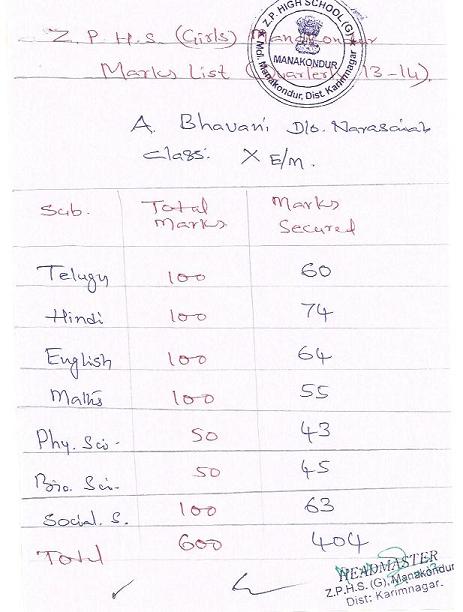 Z.P. HIGH SCHOOL (G)
MANAKONDUR
Mdl. Manakondur, Dist. Karimnagar
Z.P.H.S. (Girls) Manakondur
Marks List (Quarterly 13-14).
A. Bhavani D/o. Narasaiah
Class. X E/m.
Sub. Total Marks Marks Secured
Telugu 100 60
Hindi 100 74
English 100 64
Maths 100 55
Phy. Sci. 50 43
Bio. Sci. 50 45
Social. S. 100 63
Total 600 404
HEADMASTER
Z.P.H.S. (G), Manakondur
Dist: Karimnagar.